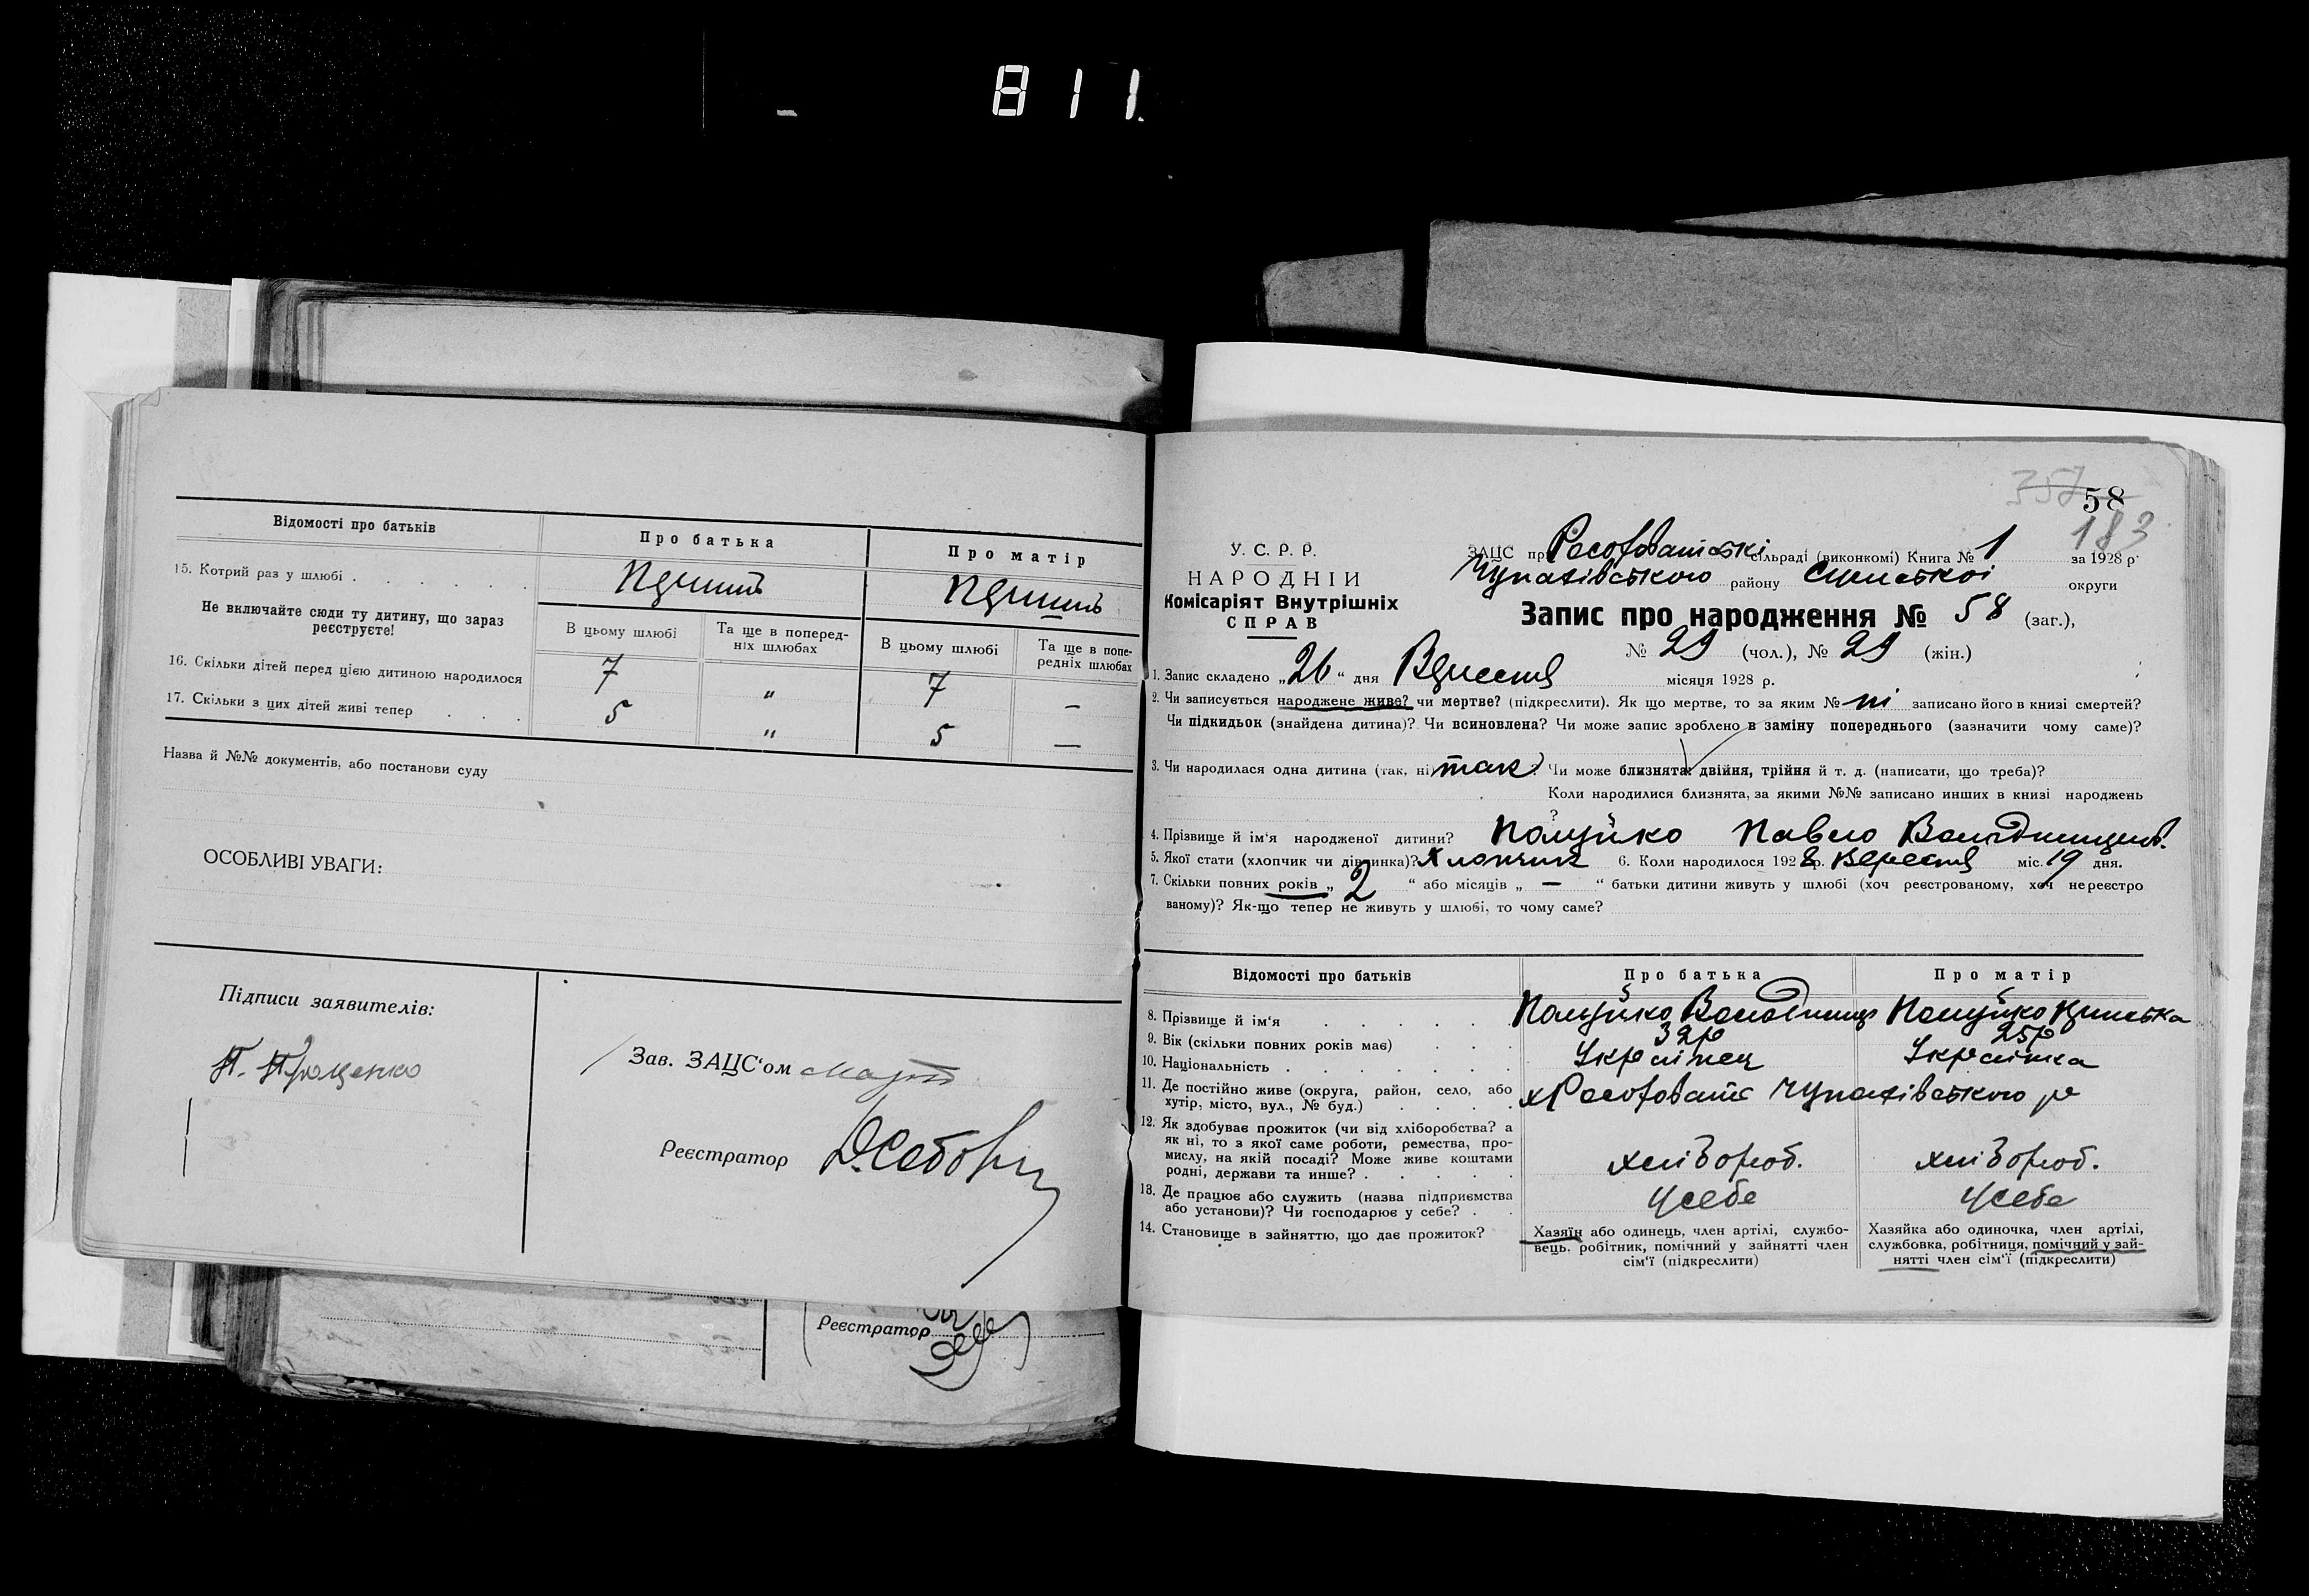 811.
Відомості про батьків
Про батька
Про матір
15. Котрий раз у шлюбі
Не включайте сюди ту дитину, що зараз реєструєте!
В цьому шлюбі
Та ще в поперед-
ніх шлюбах
В цьому шлюбі
Та ще в попе-
редніх шлюбах
16. Скільки дітей перед цією дитиною народилося 7 " 7 —
17. Скільки з цих дітей живі тепер . . . 5 " 5 —
Назва й №№ документів, або постанови суду
ОСОБЛИВІ УВАГИ:
Підписи заявителів:
Зав. ЗАЦС'ом
Реєстратор
Реєстратор
357
58
183
У. С. Р. Р.
НАРОДНІЙ
Комісаріят Внутрішніх
СПРАВ
ЗАЦС пр сільраді (виконкомі) Книга № 1 за 1928 р.
району Сумської округи
Запис про народження № 58 (заг.),
№ 29 (чол.), № 29 (жін.)
1. Запис складено „26“ дня Вересня місяця 1928 р.
2. Чи записується народжене живе? чи мертве? (підкреслити). Як що мертве, то за яким № ні записано його в книзі смертей?
Чи підкидьок (знайдена дитина)? Чи всиновлена? Чи може запис зроблено в заміну попереднього (зазначити чому саме)?
3. Чи народилася одна дитина (так, ні) так Чи може близнята: двійня, трійня й т. д. (написати, що треба)?
Коли народилися близнята, за якими №№ записано инших в книзі народжень
?
4. Прізвище й ім'я народженої дитини? Павло
5. Якої стати (хлопчик чи дівчинка)? Хлопчик 6. Коли народилося 1928 р. Вересня міс. 19 дня.
7. Скільки повних років „2“ або місяців „—“ батьки дитини живуть у шлюбі (хоч реєстрованому, хоч нереєстро
ваному)? Як-що тепер не живуть у шлюбі, то чому саме?
Відомості про батьків
Про батька
Про матір
8. Прізвище й ім'я
9. Вік (скільки повних років має) 32р 25р
10. Національність Українец Українка
11. Де постійно живе (округа, район, село, або
хутір, місто, вул., № буд.)
12. Як здобуває прожиток (чи від хліборобства? а
як ні, то з якої саме роботи, ремества, про-
мислу, на якій посаді? Може живе коштами
родні, держави та инше? хлібороб. хлібороб.
13. Де працює або служить (назва підприємства
або установи)? Чи господарює у себе? У себе У себе
14. Становище в зайняттю, що дає прожиток?
Хазяїн або одинець, член артілі, службо-
вець, робітник, помічний у зайнятті член
сім'ї (підкреслити)
Хазяйка або одиночка, член артілі,
службовка, робітниця, помічний у зай-
нятті член сім'ї (підкреслити)